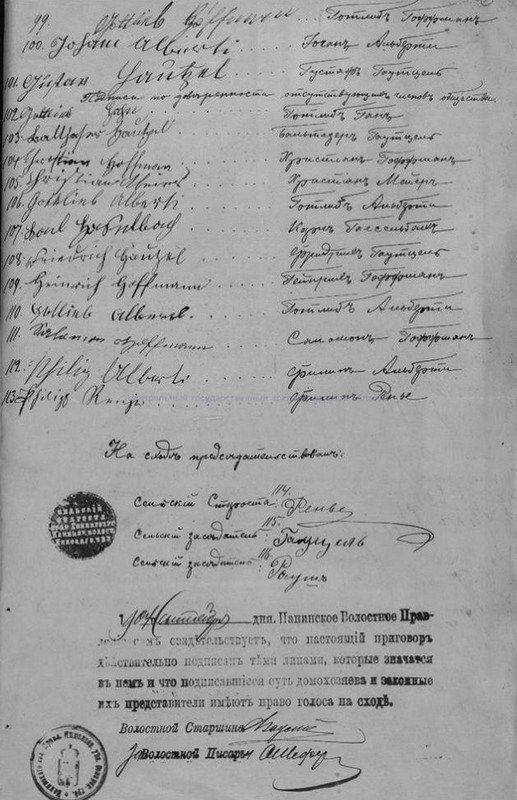 99. Gottlieb Hoffmann Готлибъ Гоффманъ
100. Johann Alberti Іоганъ Альберти
101. Gustav Hautzel Густафъ Гаутцель
Подписи по доверенности отсутствующихъ членовъ общества.
102 Gottlieb Hahn Готлибъ Ганъ
103. Balthaser Hautzel Бальтазеръ Гаутцель
104 Christian Hoffmann Христіанъ Гоффманъ
105. Christian Христіанъ Мейеръ
106. Gottlieb Alberti Готлибъ Альберти
107. Karl Hasselbach Карлъ Гассельбахъ
108. Friedrich Hautzel Фридрихъ Гаутцель
109. Heinrich Hoffmann Гейнрихъ Гоффманъ
110. Gottlieb Alberti Готлибъ Альберти
111. Salomon Hoffmann Саломонъ Гоффманъ
112. Philip Alberti Филипъ Альберти
113. Philipp Филипъ Ренье
На сходѣ председательствовалъ:
114.
Сельскій Староста: Ренье
115.
Сельскій заседатель: Гаутцель
116.
Сельскій заседатель: Раушъ
дня. Панинское Волостное Прав-
леніе симъ свидѣтельствуетъ, что настоящій приговоръ
дѣйствительно подписанъ тѣми лицами, которые значатся
въ немъ и что подписавшіеся суть домохозяева и законные
ихъ представители имѣютъ право голоса на сходѣ.
Волостной Старшина
За Волостной Писарь А Шефер